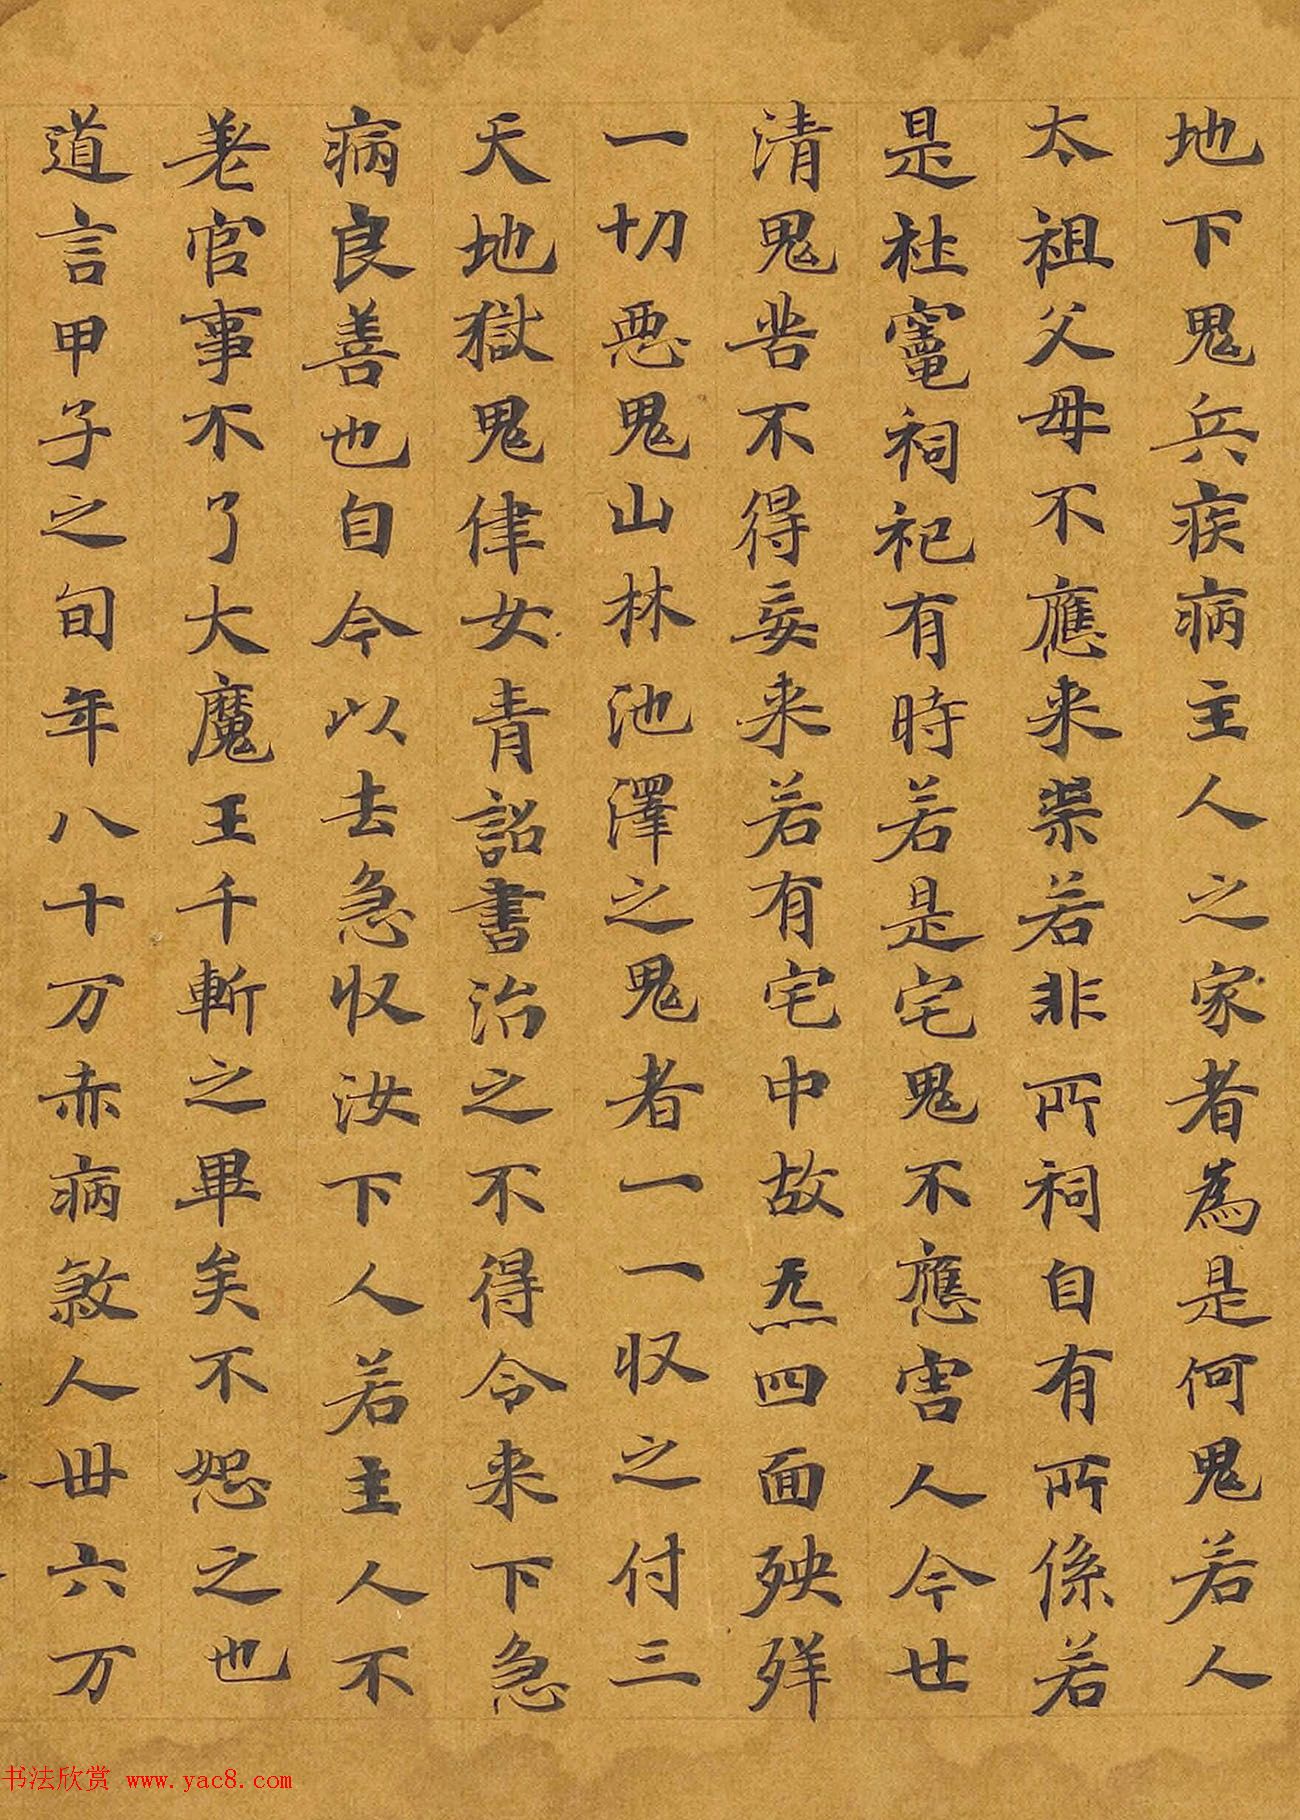 地下鬼兵疾病主人之家者為是何鬼若人
太祖父母不應来祟若非所祠自有所係若
是社竈祠祀有時若是宅鬼不應害人今世
清鬼若不得妄来若有宅中故炁四面殃殃
一切惡鬼山林池澤之鬼者一一收之付三
天地獄鬼律女青詔書治之不得令来下急
病良善也自今以去急收汝下人若主人不
差官事不了大魔王千斬之畢矣不恕之也
道言甲子之旬年八十万赤病煞人卌六万
书法欣赏 www.yac8.com